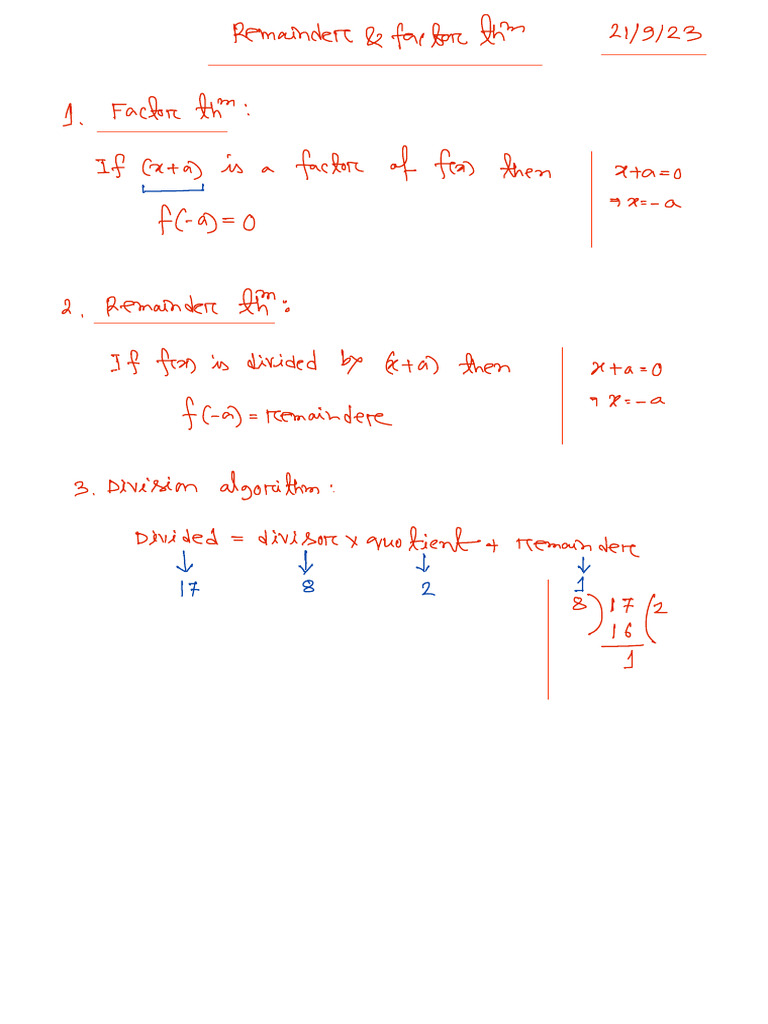 Remainder & factor thᵐ 21/9/23
1. Factor thᵐ:
If (x+a) is a factor of f(x) then
x+a=0
f(-a)=0
⇒ x=-a
2. Remainder thᵐ:
If f(x) is divided by (x+a) then
x+a=0
f(-a)=remainder
⇒ x=-a
3. Division algorithm:
Divided = divisor × quotient + remainder
↓ ↓ ↓ ↓
17 8 2 1
8) 17 (2
16
1